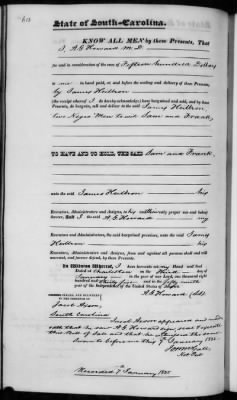 State of South-Carolina.
KNOW ALL MEN by these Presents, That
I, A G Howard M. D.
for and in consideration of the sum of Fifteen hundred Dollars
to me in hand paid, at and before the sealing and delivery of these Presents,
by James
(the receipt whereof I do hereby acknowledge) have bargained and sold, and by these
Presents, do bargain, sell and deliver to the said James
two Negro Men named Sam and Frank,
TO HAVE AND TO HOLD, THE SAID Sam and Frank,
unto the said James his
Executors, Administrators and Assigns, to his and their only proper use and behoof
forever, And I the said A G Howard my
Executors, Administrators, the said bargained premises, unto the said James
his
Executors, Administrators and Assigns, from and against all persons shall and will
warrant, and forever defend, by these Presents.
In Witness Whereof, I have hereunto set my Hand and Seal
Dated at Charleston on the Third day of
January in the year of our Lord, one thousand eight
hundred and thirty five and in the fifty ninth
year of the Independence of the United States of America.
A G Howard
SIGNED, SEALED, AND DELIVERED
IN THE PRESENCE OF
Jacob
South Carolina
Jacob appeared and made
oath that he saw A G Howard sign seal &
this Bill of Sale and that he the same
before me this 7 January 1835
Not Pub
Recorded 7 January 1835